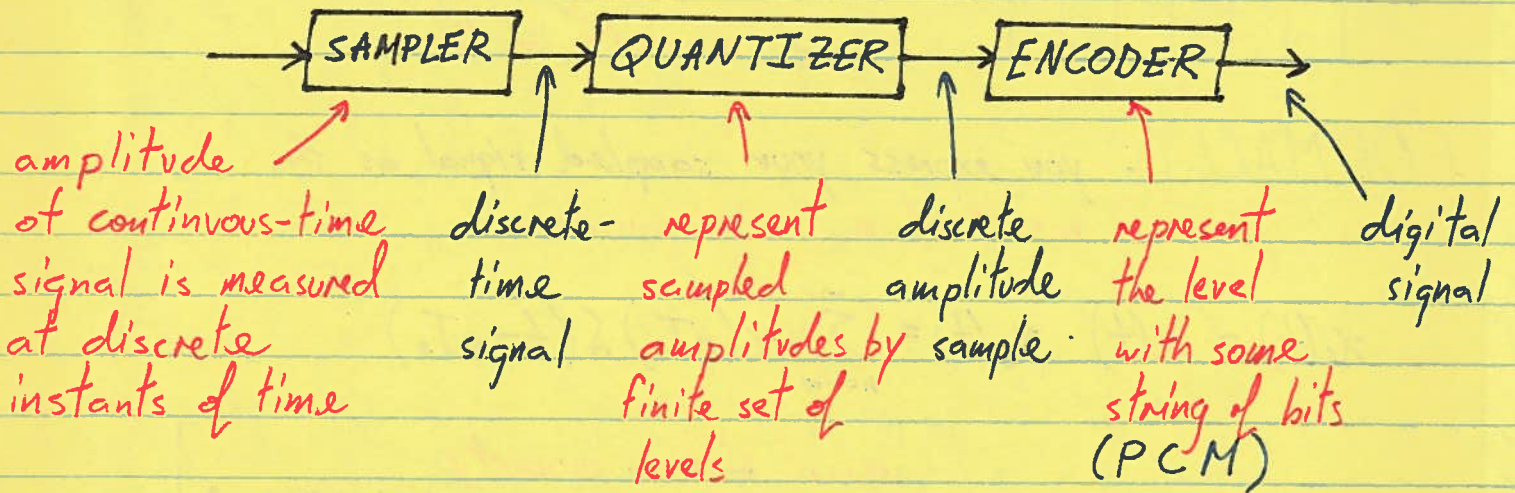 SAMPLER
QUANTIZER
ENCODER
amplitude
of continuous-time
signal is measured
at discrete
instants of time
discrete-
time
signal
represent
sampled
amplitudes by
finite set of
levels
discrete
amplitude
sample
represent
the level
with some
string of bits
(PCM)
digital
signal